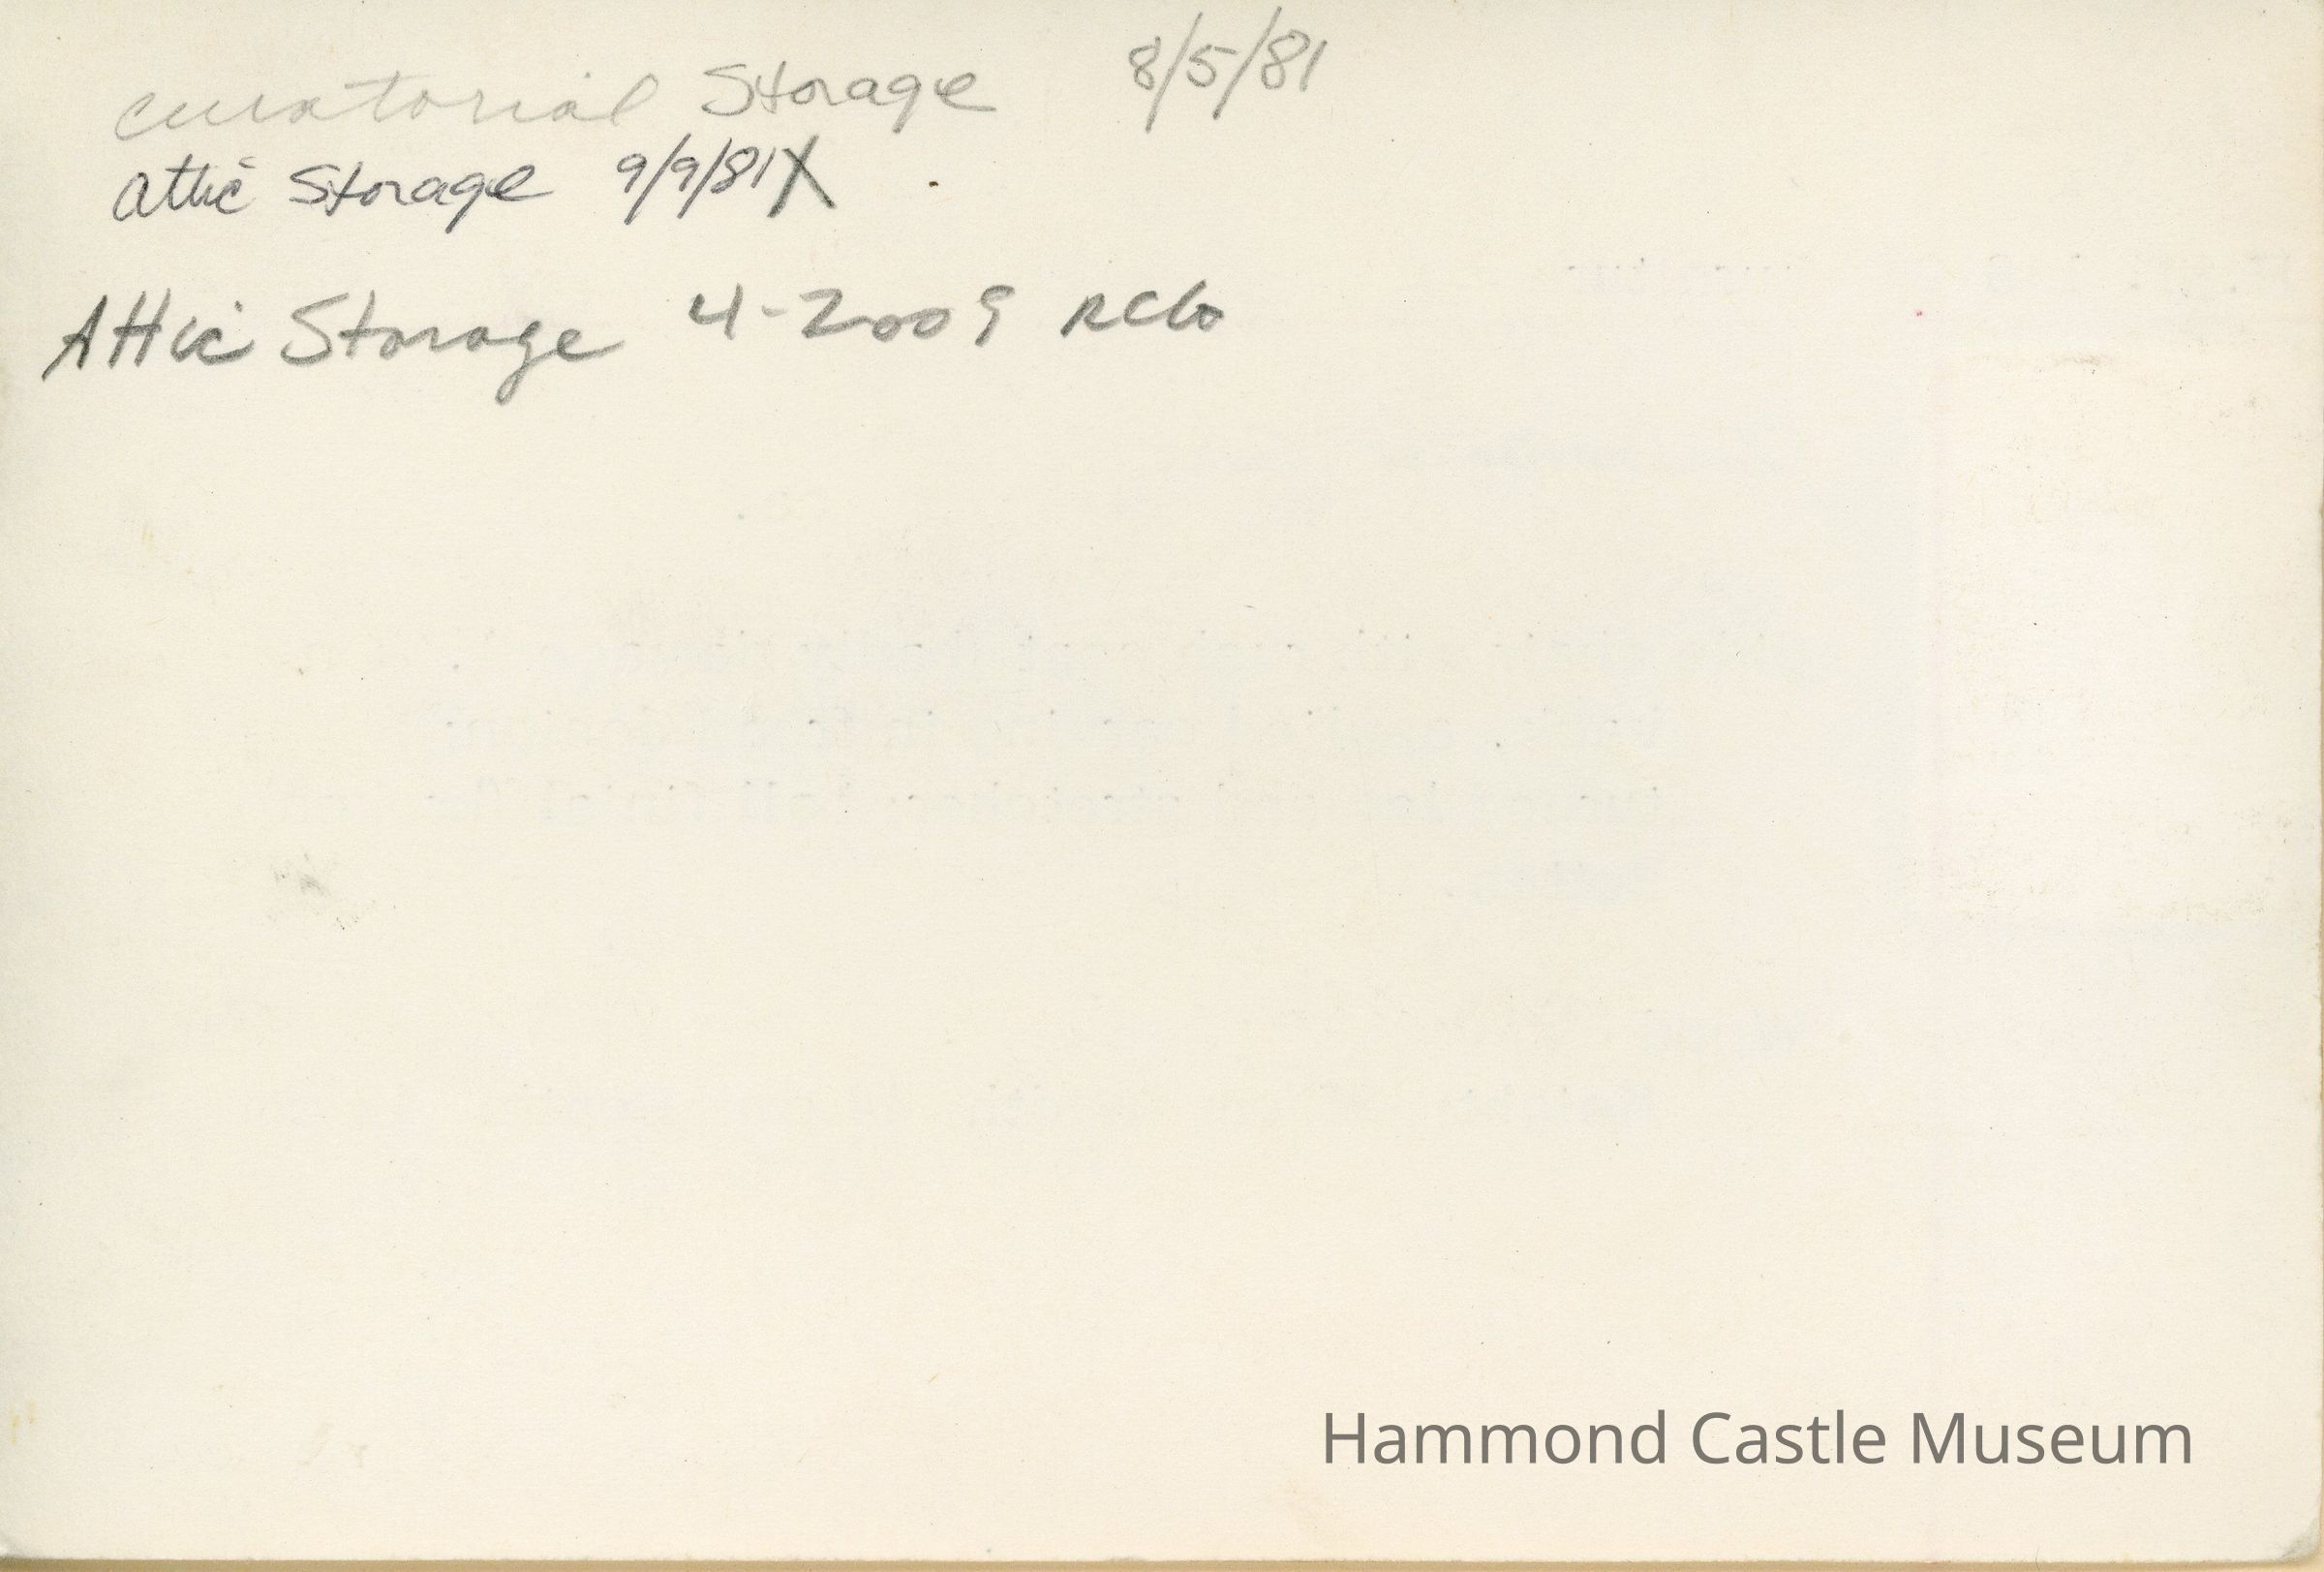 curatorial Storage 8/5/81
attic Storage 9/9/81 X
Attic Storage 4-2009 RCG
Hammond Castle Museum